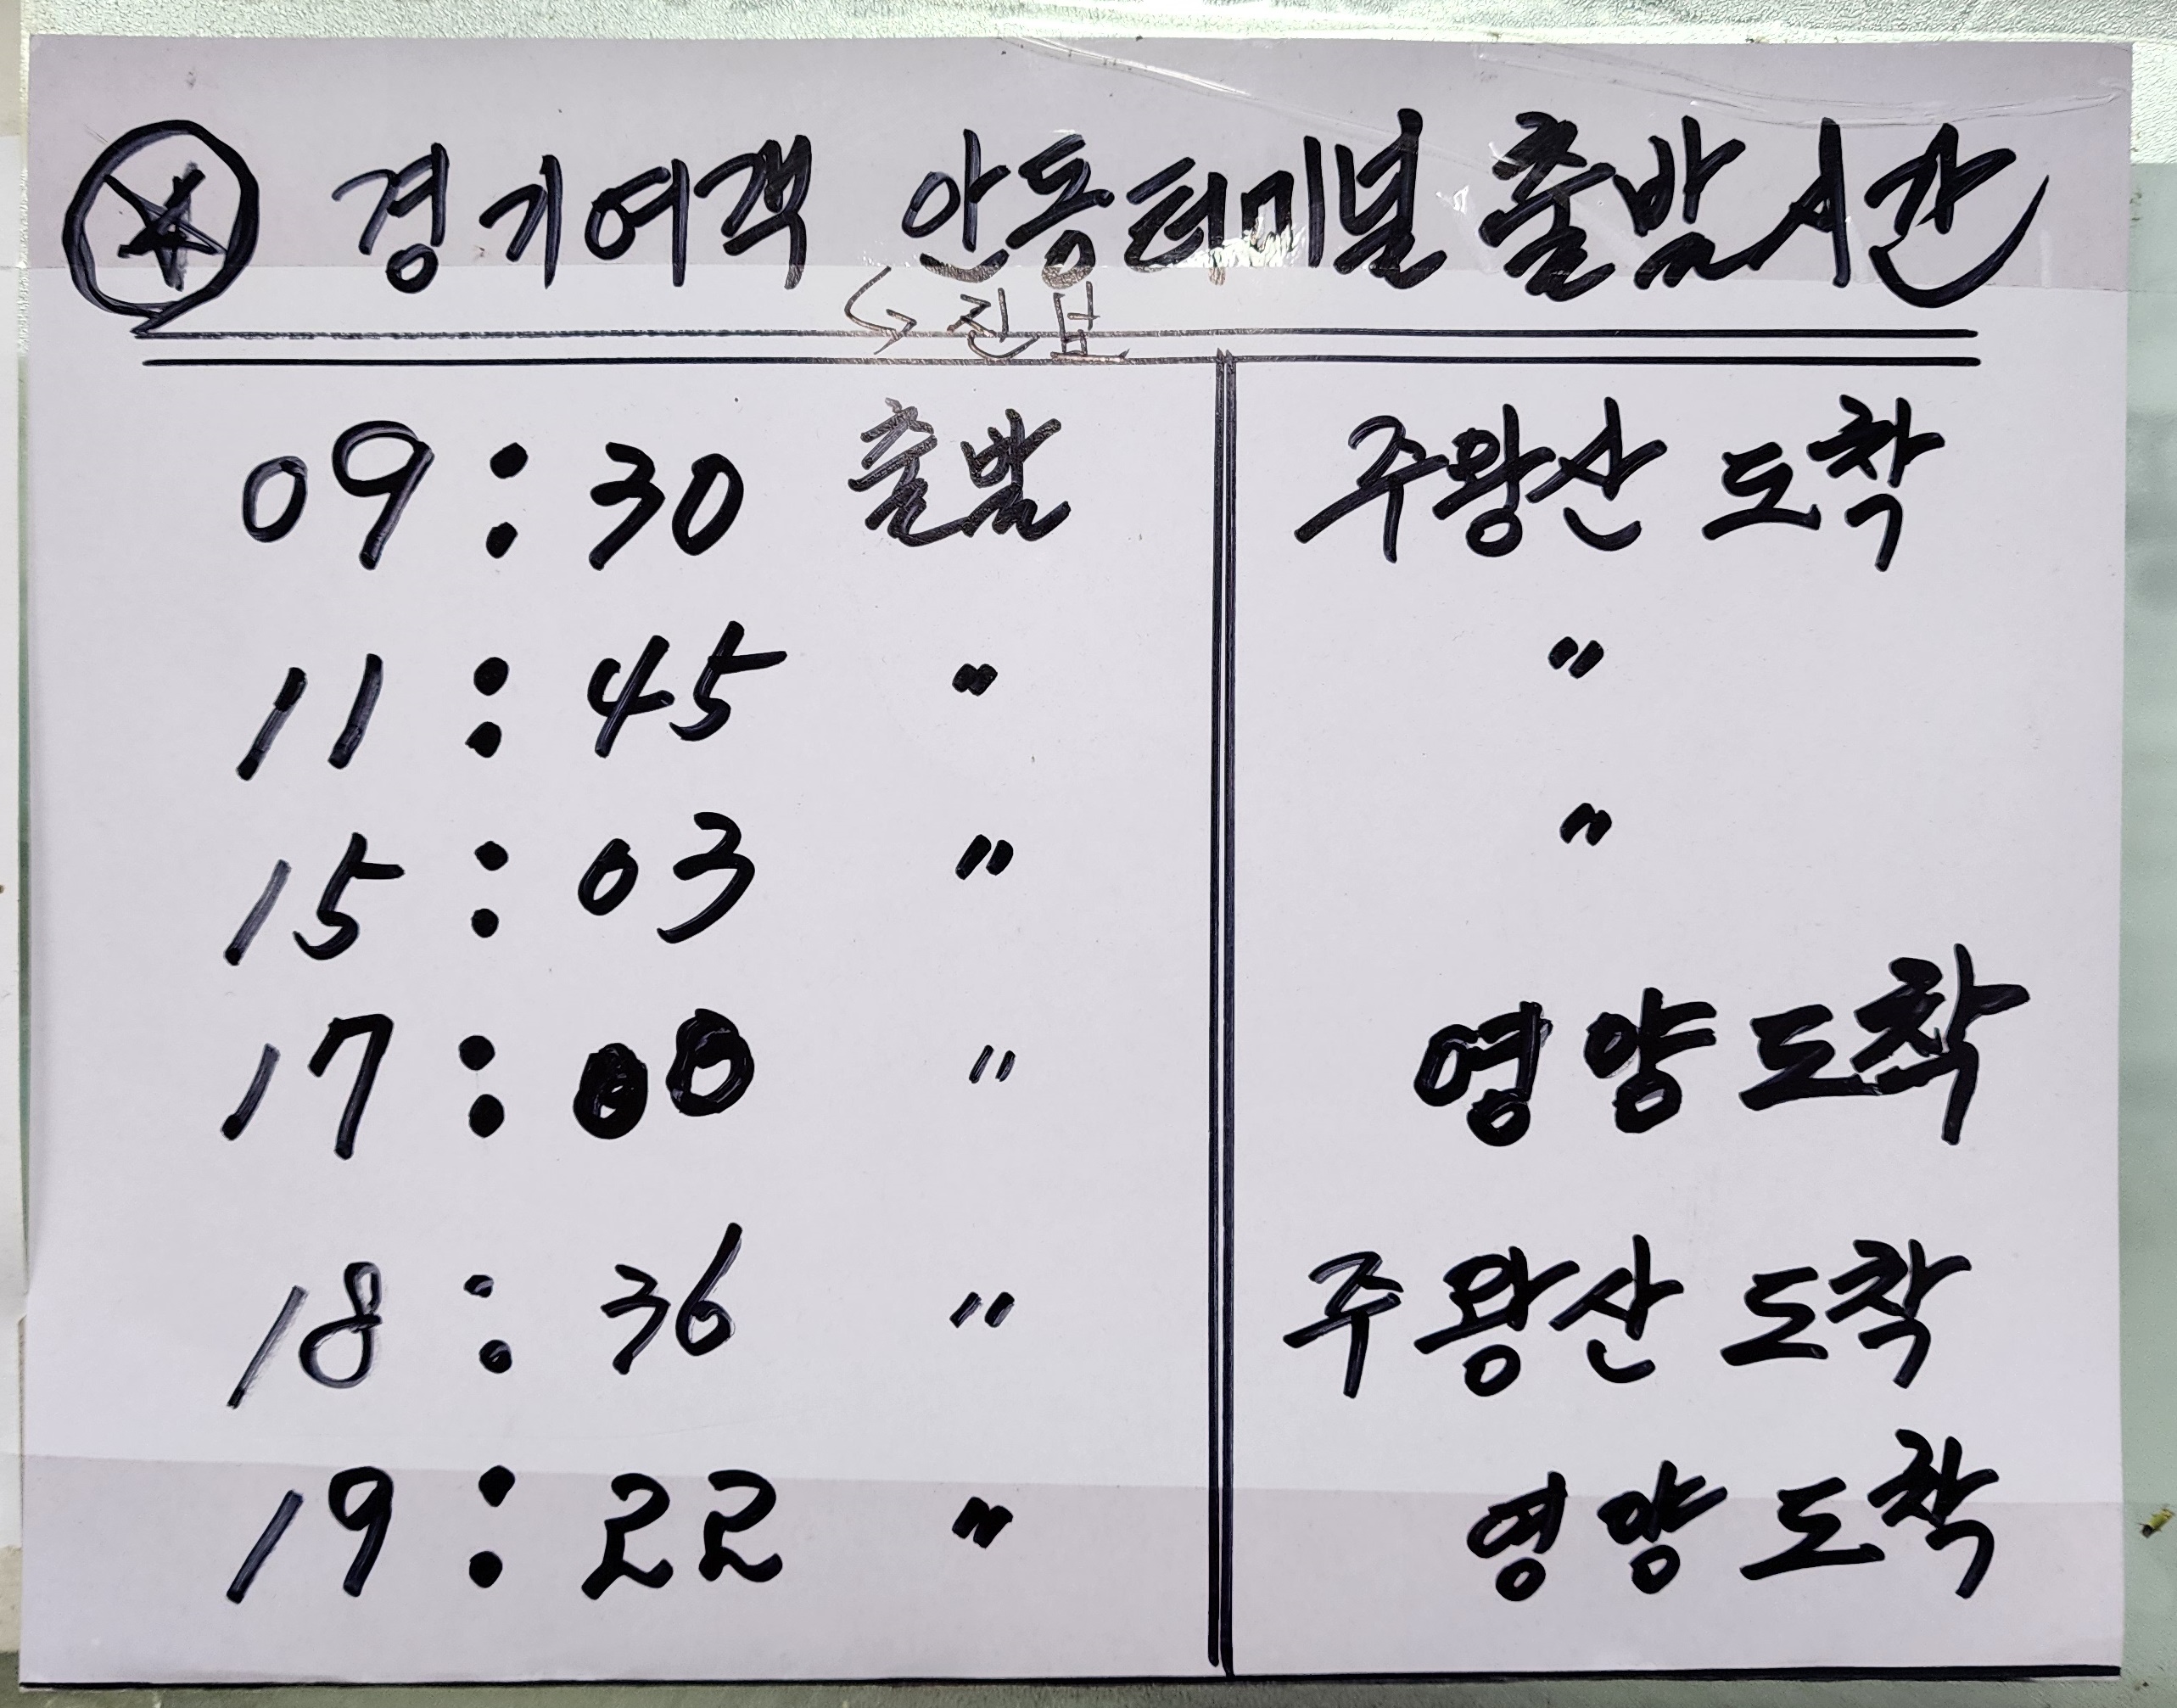 경기여객 안동터미널 출발시간
↳ 진보
09:30 출발 주왕산 도착
11:45 〃 〃
15:03 〃 〃
17:00 〃 영양도착
18:36 〃 주왕산 도착
19:22 〃 영양도착